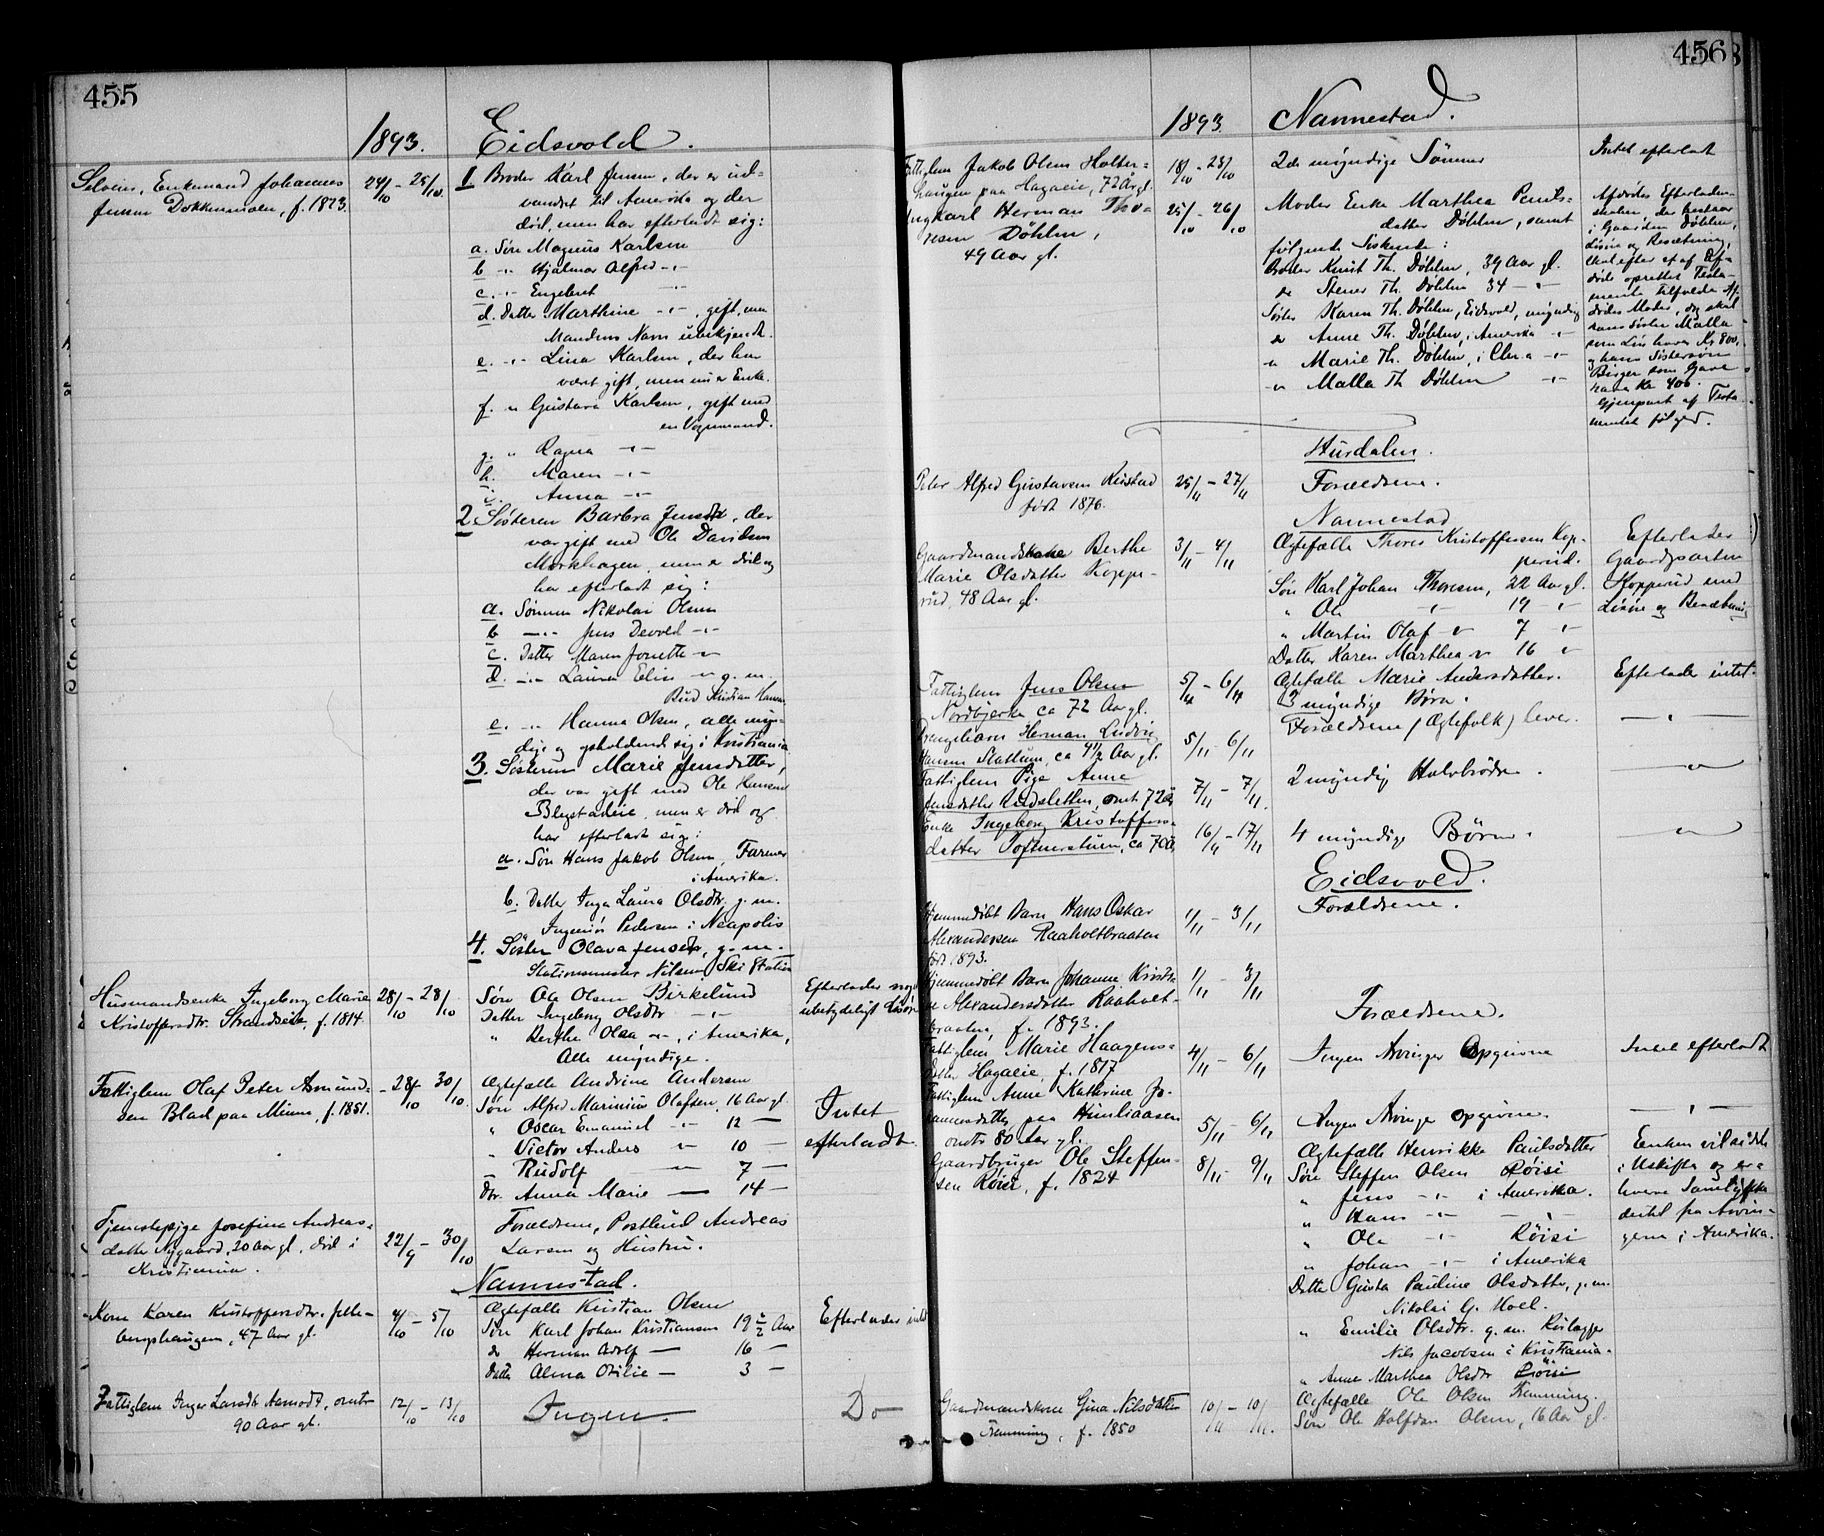 455
1893. Eidsvold.
Selveier, Enkemand Johannes
Jensen Dokkenmoen, f. 1823.
24/10 - 25/10.
1. Broder Karl Jensen, der er ud-
vandret til Amerika og der
död, men har efterladt sig:
a. Sön Magnus Karlsen
b " Hjalmar Alfred -"-
c. -"- Engebret -"-
d. Datter Marthine -"-, gift, men
Mandens Navn ubekjendt.
e. -"- Lina Karlsen, der har
været gift, men nu er Enke.
f. " Gustava Karlsen, gift med
en Vognmand.
g. " Ragna -"-
h. Maren -"-
i. Anna -"-
2. Sösteren Barbra Jensdtr, der
var gift med Ole Davidsen
Morkhagen, men er död og
har efterladt sig:
a. Sönnen Nikolai Olsen
b -"- Jens Devold -"-
c. Datter Maren Jonette -"-
d. -"- Laura Elise -"- g. m.
Bud Kristian Hansen
e. -"- Hanna Olsen, alle myn-
dige og opholdende sig i Kristiania
3. Sösteren Marie Jensdatter,
der var gift med Ole Hansen
Blegstadeie, men er död og
har efterladt sig:
a. Sön Hans Jakob Olsen, Farmer
i Amerika.
b. Datter Inga Laura Olsdtr. g. m.
Ingeniör Pedersen i Neapolis
4. Söster Olava Jensdtr, g. m.
Stationsmester Nilsen Ski Station
Husmandsenke Ingeborg Marie
Kristoffersdtr. Strandeie, f. 1814
28/10 - 28/10
Sön Ole Olsen Birkelund
Datter Ingeborg Olsdtr -"-
" Berthe Olea -"-, i Amerika,
Alle myndige.
Efterlader noget
ubetydeligt Lösöre
Fattiglem Olaf Peter Asmund-
sen Blad paa Minne, f. 1851.
28/10 - 30/10.
Ægtefælle Andrine Andersen
Sön Alfred Marinius Olafsen, 16 Aar gl.
" Oscar Emanuel -"- 12 —
" Victor Anders -"- 10 —
" Rudolf -"- 7 —
Dtr. Anna Marie — 14 —
Intet
efterladt
Tjenestepige Josefine Andreas-
datter Nygaard, 20 Aar gl, död i
Kristiania.
22/9 - 30/10
Forældrene, Postbud Andreas
Larsen og Hustru.
Nannestad.
Kone Karen Kristoffersdtr.
47 Aar gl.
4/10 - 5/10
Ægtefælle Kristian Olsen
Sön Karl Johan Kristiansen 19 1/2 Aar
do Herman Adolf — 16 —
Datter Alma Otilie — 3 —
Efterlader intet
Fattiglem Inger Larsdtr Aamodt, omtr
90 Aar gl.
12/10 - 13/10
Ingen.
Do
456
1893 Nannestad.
Fattiglem Jakob Olsen Holter-
haugen paa Hagaeie, 72 Aar gl.
18/10 - 23/10
2de myndige Sönner
Intet efterladt
Ungkarl Herman Tho-
resen Döhlen,
49 Aar gl.
25/10 - 26/10
Moder Enke Marthea Pouls-
datter Döhlen, samt
følgende Söskende:
Broder Knut Th. Döhlen, 39 Aar gl.
do Stener Th. Döhlen 34 — " —
Söster Karen Th. Döhlen, Eidsvold, myndig
do Anne Th. Döhlen, i Amerika -"-
" Marie Th. Döhlen, i Chr.a -"-
" Malla Th Döhlen -"-
Afdødes Efterladen-
skaber, der bestaar
i Gaarden Döhlen,
Lösöre og Besætning,
skal efter et af Af-
døde oprettet Testa-
mente tilfalde Af-
dödes Moder, dog skal
hans Söster Malla
som Lön have Kr 800,
og hans Söstersön
Birger som Gave
have Kr 400.
Gjenpart af Testa-
mentet følger.
Hurdalen.
Peter Alfred Gustavsen
født 1876.
25/11 - 27/11
Forældrene.
Nannestad
Gaardmandskone Berthe
Marie Olsdatter Koppe-
rud, 48 Aar gl.
3/11 - 4/11
Ægtefælle Thores Kristoffersen Kop-
perud.
Sön Karl Johan Thoresen, 22 Aar gl.
" Ole " 19 "
" Martin Olaf " 7 "
Datter Karen Marthea " 16 "
Efterlader
Gaardparten
Kopperud med
Lösöre og Besætning
Fattiglem Jens Olsen
Nordbjerke ca 72 Aar gl.
5/11 - 6/11
Ægtefælle Marie Andersdatter.
3 myndige Børn.
Efterlader intet.
Drengebarn Herman Ludvig
Hansen Slattum, ca 4 1/2 Aar gl.
5/11 - 6/11
Forældrene (Ægtefolk) lever.
— " —
Fattiglem Pige Anne
Jensdatter omt 72 Aar
7/11 - 7/11.
2 myndig Halvbrødre.
— " —
Enke Ingeborg Kristoffers-
datter ca 70 Aar
16/11 - 17/11
4 myndige Børn.
— " —
Eidsvold.
Hjemmedöbt Barn Hans Oskar
Alexandersen Raaholtbraaten
født 1893.
1/11 - 3/11
Forældrene.
Hjemmedöbt Barn Johanne Kristi-
ne Alexandersdatter Raaholt-
braaten, f. 1893.
1/11 - 3/11
Forældrene.
Fattiglem Marie Haagens-
datter Hagaeie, f. 1817
4/11 - 6/11
Ingen Arvinger Opgivne
Intet efterladt
Fattiglem Anne Kathrine Jo-
hannesdatter, paa Himliaasen
omtr 80 Aar gl.
5/11 - 6/11
Ingen Arvinger opgivne.
— " —
Gaardbruger Ole Steffen-
sen Röisi, f. 1824
8/11 - 9/11
Ægtefælle Henrikke Paulsdatter
Sön Steffen Olsen Röisi
" Jens -"- i Amerika.
" Hans -"- — " —
" Ole -"- Röisi
" Johan -"- i Amerika
Datter Gusta Pauline Olsdatter, g. m.
Nikolai G. Hoel.
" Emilie Olsdtr. g. m.
Nils Jacobsen i Kristiania.
" Anne Marthea Olsdtr Röisi
Enken vil sidde
i Uskifte og er-
hverve Samtykke
dertil fra Arvin-
gerne i Amerika.
Gaardmandskone Gina Nilsdatter
Femming, f. 1850
10/11 - 10/11.
Ægtefælle Ole Olsen Femming.
Sön Ole Halfdan Olsen, 16 Aar gl.